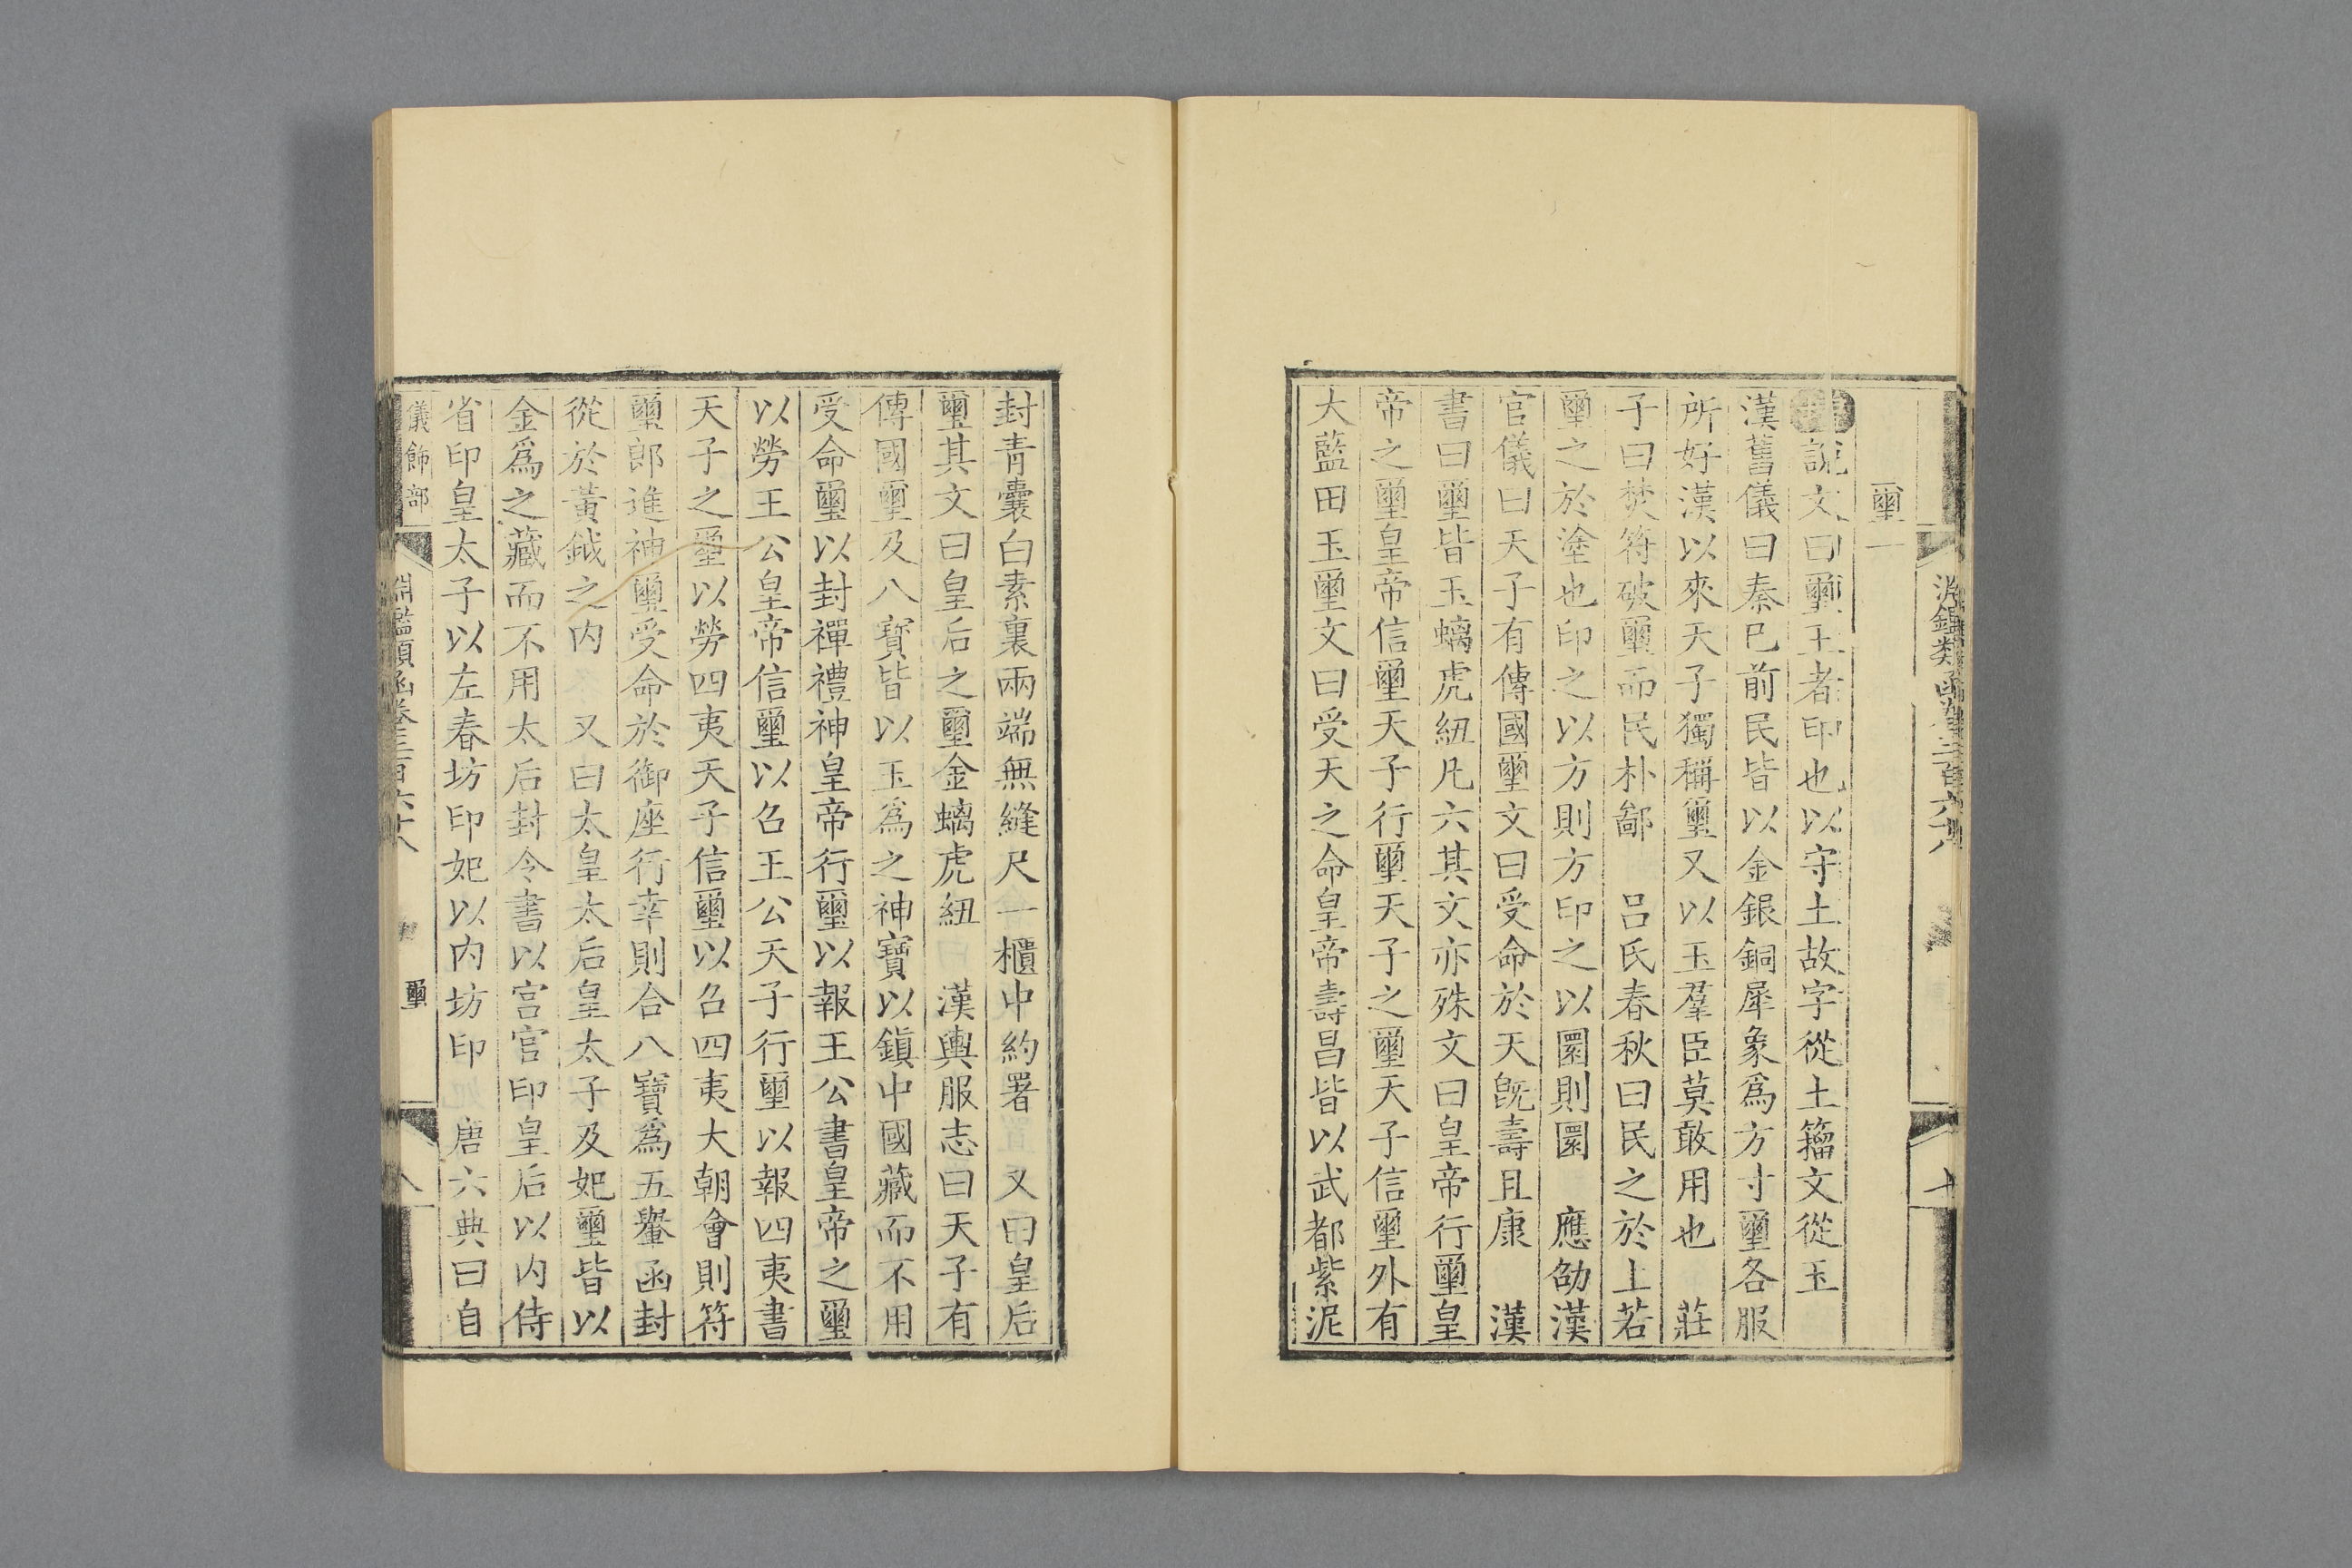 璽一
說文曰璽王者印也以守土故字從土籀文從玉
漢舊儀曰秦已前民皆以金銀銅犀象爲方寸璽各服
所好漢以來天子獨稱璽又以玉羣臣莫敢用也 莊
子曰焚符破璽而民朴鄙 呂氏春秋曰民之於上若
璽之於塗也印之以方則方印之以圜則圜 應劭漢
官儀曰天子有傳國璽文曰受命於天旣壽且康 漢
書曰璽皆玉螭虎紐凡六其文亦殊文曰皇帝行璽皇
帝之璽皇帝信璽天子行璽天子之璽天子信璽外有
大藍田玉璽文曰受天之命皇帝壽昌皆以武都紫泥
封青囊白素裏兩端無縫尺一櫃中約署 又曰皇后
璽其文曰皇后之璽金螭虎紐 漢輿服志曰天子有
傳國璽及八寳皆以玉爲之神寶以鎮中國藏而不用
受命璽以封禪禮神皇帝行璽以報王公書皇帝之璽
以勞王公皇帝信璽以召王公天子行璽以報四夷書
天子之璽以勞四夷天子信璽以召四夷大朝會則符
璽郎進神璽受命於御座行幸則合八寶爲五轝函封
從於黃鉞之内 又曰太皇太后皇太子及妃璽皆以
金爲之藏而不用太后封令書以宮官印皇后以内侍
省印皇太子以左春坊印妃以内坊印 唐六典曰自
儀飾部
淵鑑類函卷三百六十八
璽